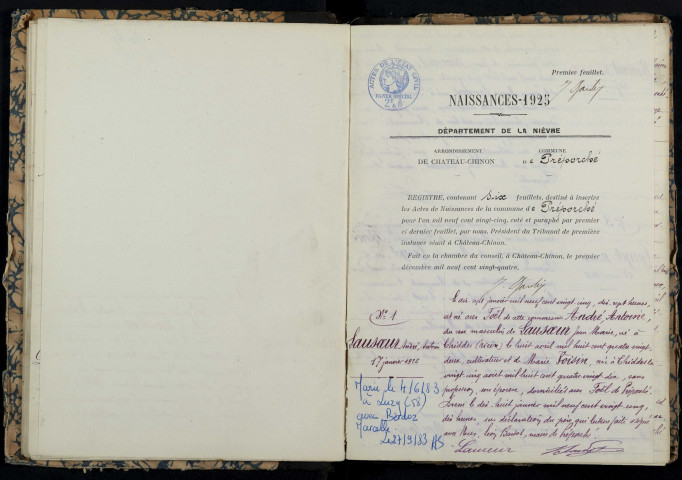 Premier feuillet.
ACTES DE L'ÉTAT CIVIL
NAISSANCES-1925
DÉPARTEMENT DE LA NIÈVRE
ARRONDISSEMENT
DE CHATEAU-CHINON
COMMUNE
de Préporché
REGISTRE, contenant Six feuillets, destiné à inscrire
les Actes de Naissances de la commune de Préporché
pour l'an mil neuf cent vingt-cinq, coté et paraphé par premier
et dernier feuillet, par nous, Président du Tribunal de première
instance séant à Château-Chinon.
Fait en la chambre du conseil, à Château-Chinon, le premier
décembre mil neuf cent vingt-quatre.
No 1
17 janvier 1925
Marié le 4/6/83
à Luzy (58)
avec
Marcelle
Le 27/9/83
Le dix sept janvier mil neuf cent vingt cinq, dix sept heures,
est né au de cette commune André Antoine
du sexe masculin de Jean Marie, né à
Chiddes (Nièvre) le huit avril mil huit cent quatre vingt
deux, cultivateur et de Marie Voisin, née à Chiddes le
vingt cinq août mil huit cent quatre vingt dix, sans
profession, son épouse, domiciliés au de Préporché
Dressé le dix huit janvier mil neuf cent vingt cinq,
dix heures, sur déclaration du père, qui lecture faite a signé
avec Nous, Léon maire de Préporché